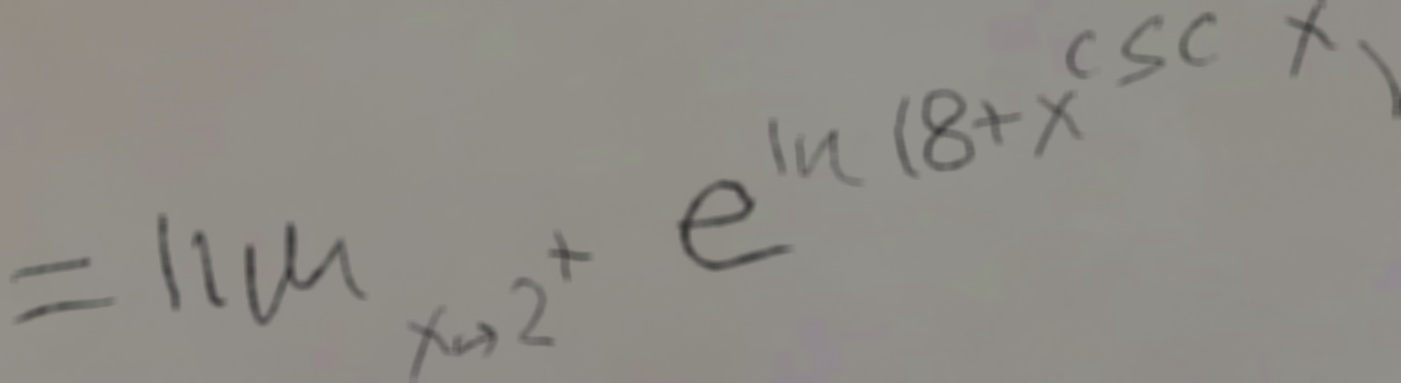 = lim x→2⁺ e^ln (8+x^csc x)